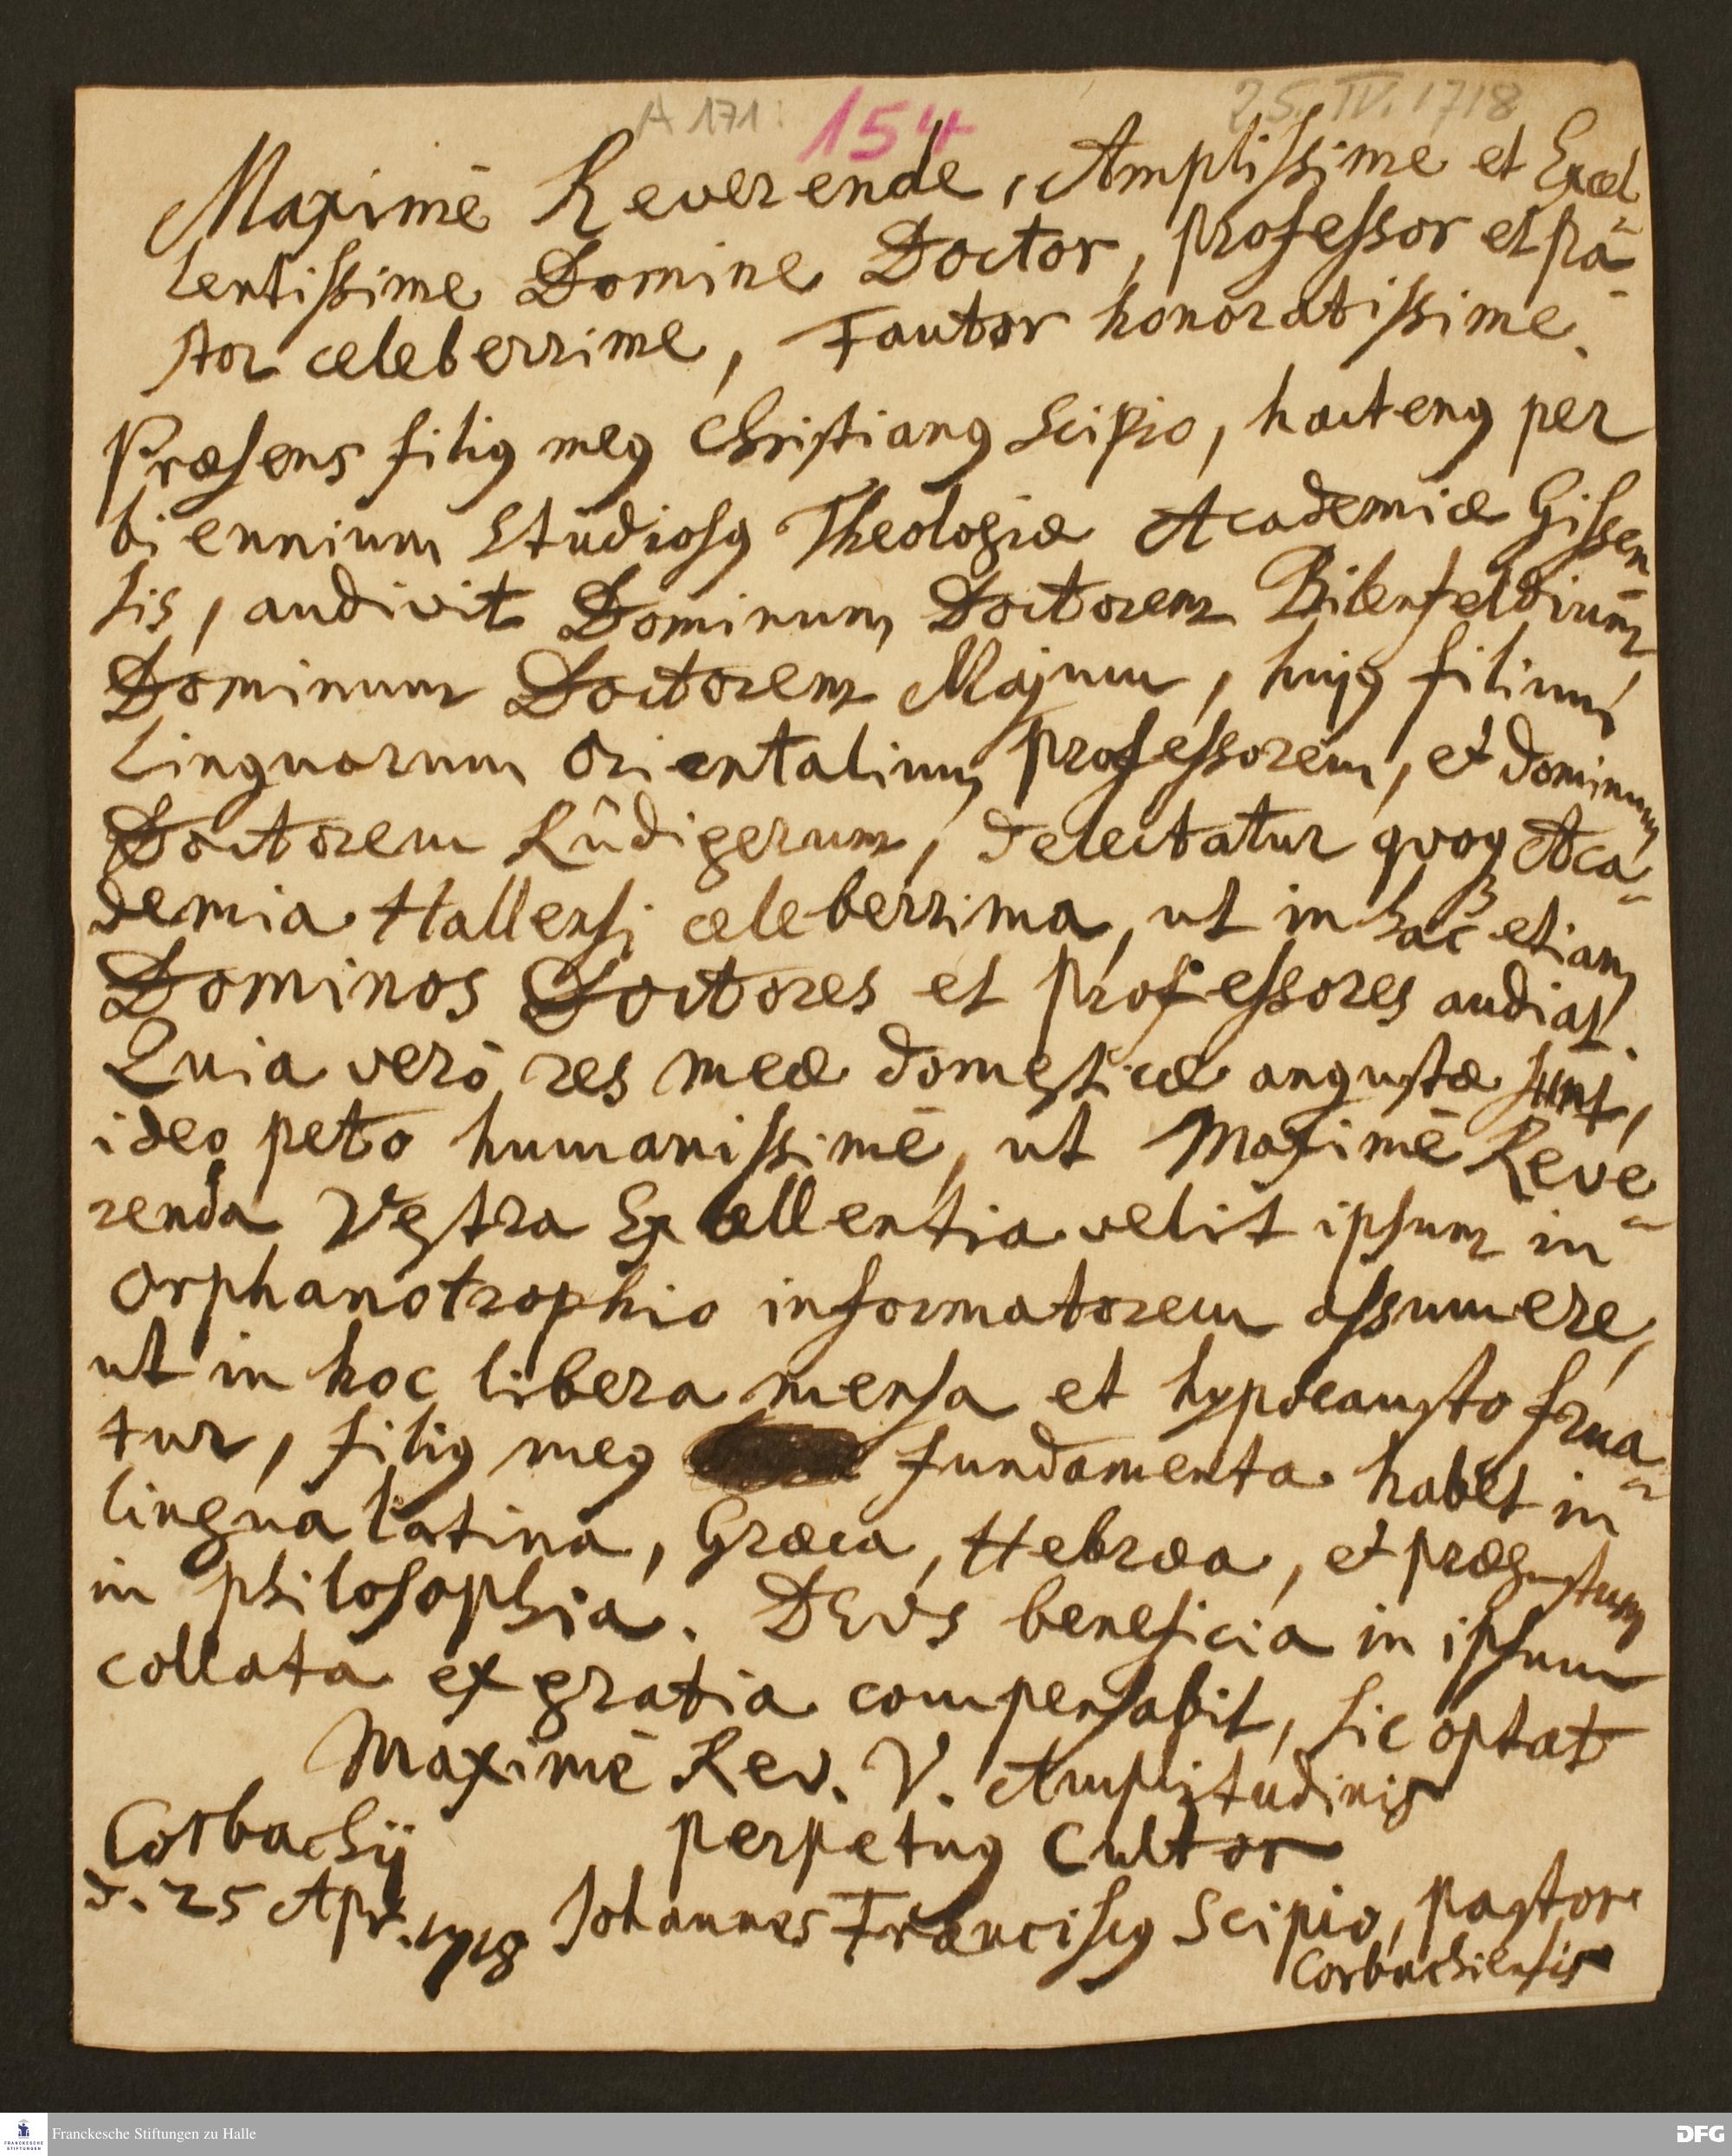 A 171: 154 25. IV. 1718
Maximè Reverende, Amplissime et Excel-
lentissime Domine Doctor, Professor et Pa-
stor celeberrime, Fautor honoratissime.
Præsens filiꝰ meꝰ Christianꝰ Scipio, hactenꝰ per
biennium Studiosꝰ Theologiæ Academiæ Gissen-
sis, audivit Dominum Doctorem Bilenfeldium,
Dominum Doctorem Majum, hujꝰ filium
Linguarum Orientalium Professorem, et Dominum
Doctorem Rûdigerum, delectatur qvoqꝫ Aca-
demia Hallensi celeberrima, ut in hac etiam
Dominos Doctores et Professores audiat.
Quia verò res meæ domesticæ angustæ sunt,
ideo peto humanissimè, ut Maximè Reve-
renda Vestra Excellentia velit ipsum in
Orphanotrophio informatorem assumere,
ut in hoc libera mensa et hypocausto frua-
tur, filiꝰ meꝰ fundamenta habet in
lingua latina, Græca, Hebræa, et prægustum
in philosophia. DEUS beneficia in ipsum
collata ex gratia compensabit, sic optat
Maximè Rev. V. Amplitudinis
perpetuꝰ Cultor
Corbachij
d. 25 Apr. 1718 Johannes Franciscꝰ Scipio, Pastor
Corbachiensis
Franckesche Stiftungen zu Halle
FRANCKESCHE
STIFTUNGEN
DFG